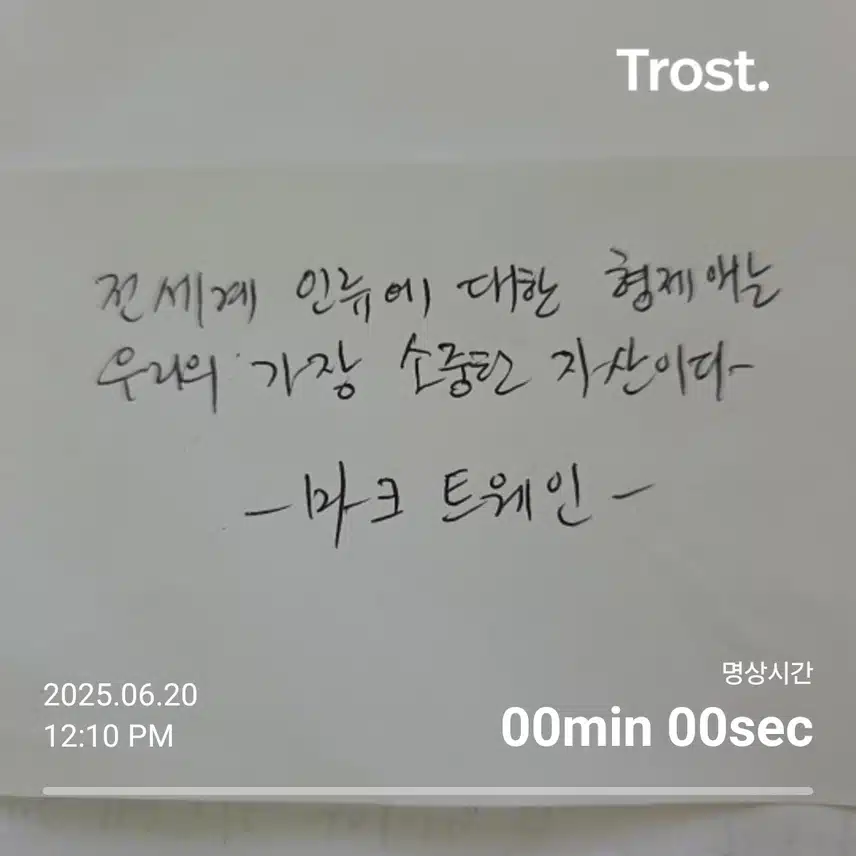 Trost.
전세계 인류에 대한 형제애는
우리의 가장 소중한 자산이다-
- 마크 트웨인 -
명상시간
2025.06.20
00min 00sec
12:10 PM